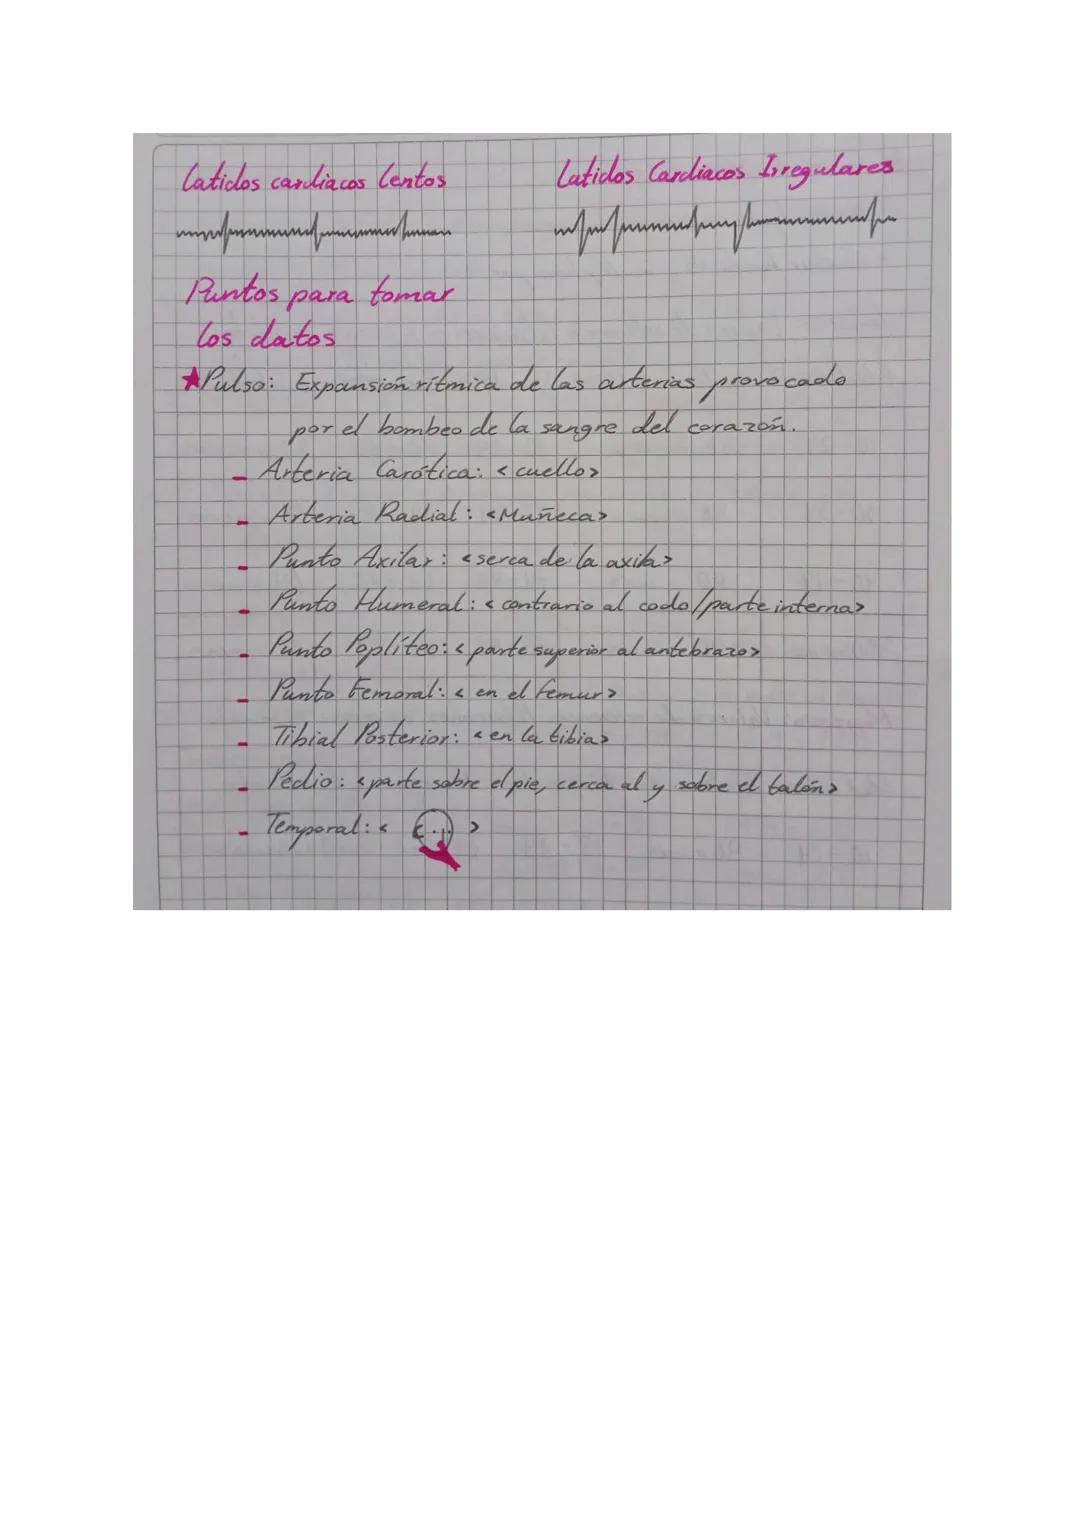 Latidos cardiacos lentos
Latidos Cardiacos Irregulares
Puntos para tomar
los datos
★Pulso: Expansión rítmica de las arterias provocado
por el bombeo de la sangre del corazón.
- Arteria Carótica: <cuello>
- Arteria Radial: <Muñeca>
- Punto Axilar: <serca de la axila>
- Punto Humeral: <contrario al codo/parte interna>
- Punto Poplíteo: <parte superior al antebrazo>
- Punto Femoral: <en el femur>
- Tibial Posterior: <en la tibia>
- Pedio: <parte sobre el pie, cerca al y sobre el talón>
- Temporal: < >